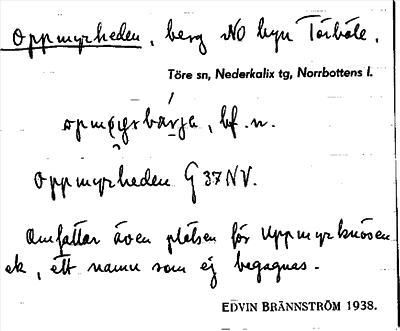 Oppmyrheden, berg NO byn Töreböle.
Töre sn, Nederkalix tg, Norrbottens l.
bf. n.
Oppmyrheden G 37 NV.
Omfattar även platsen för Uppmyrknösen
ek, ett namn som ej begagnas.
EDVIN BRÄNNSTRÖM 1938.